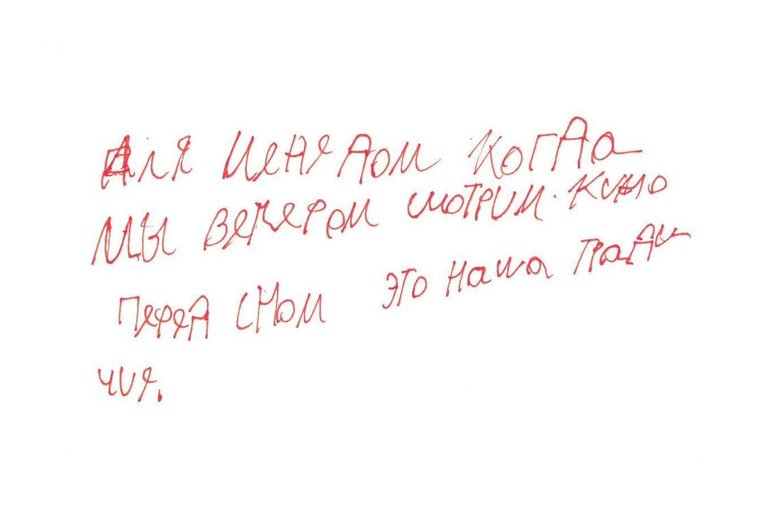 Для меня дом когда
мы вечером смотрим кино
перед сном это наша тради
чия.